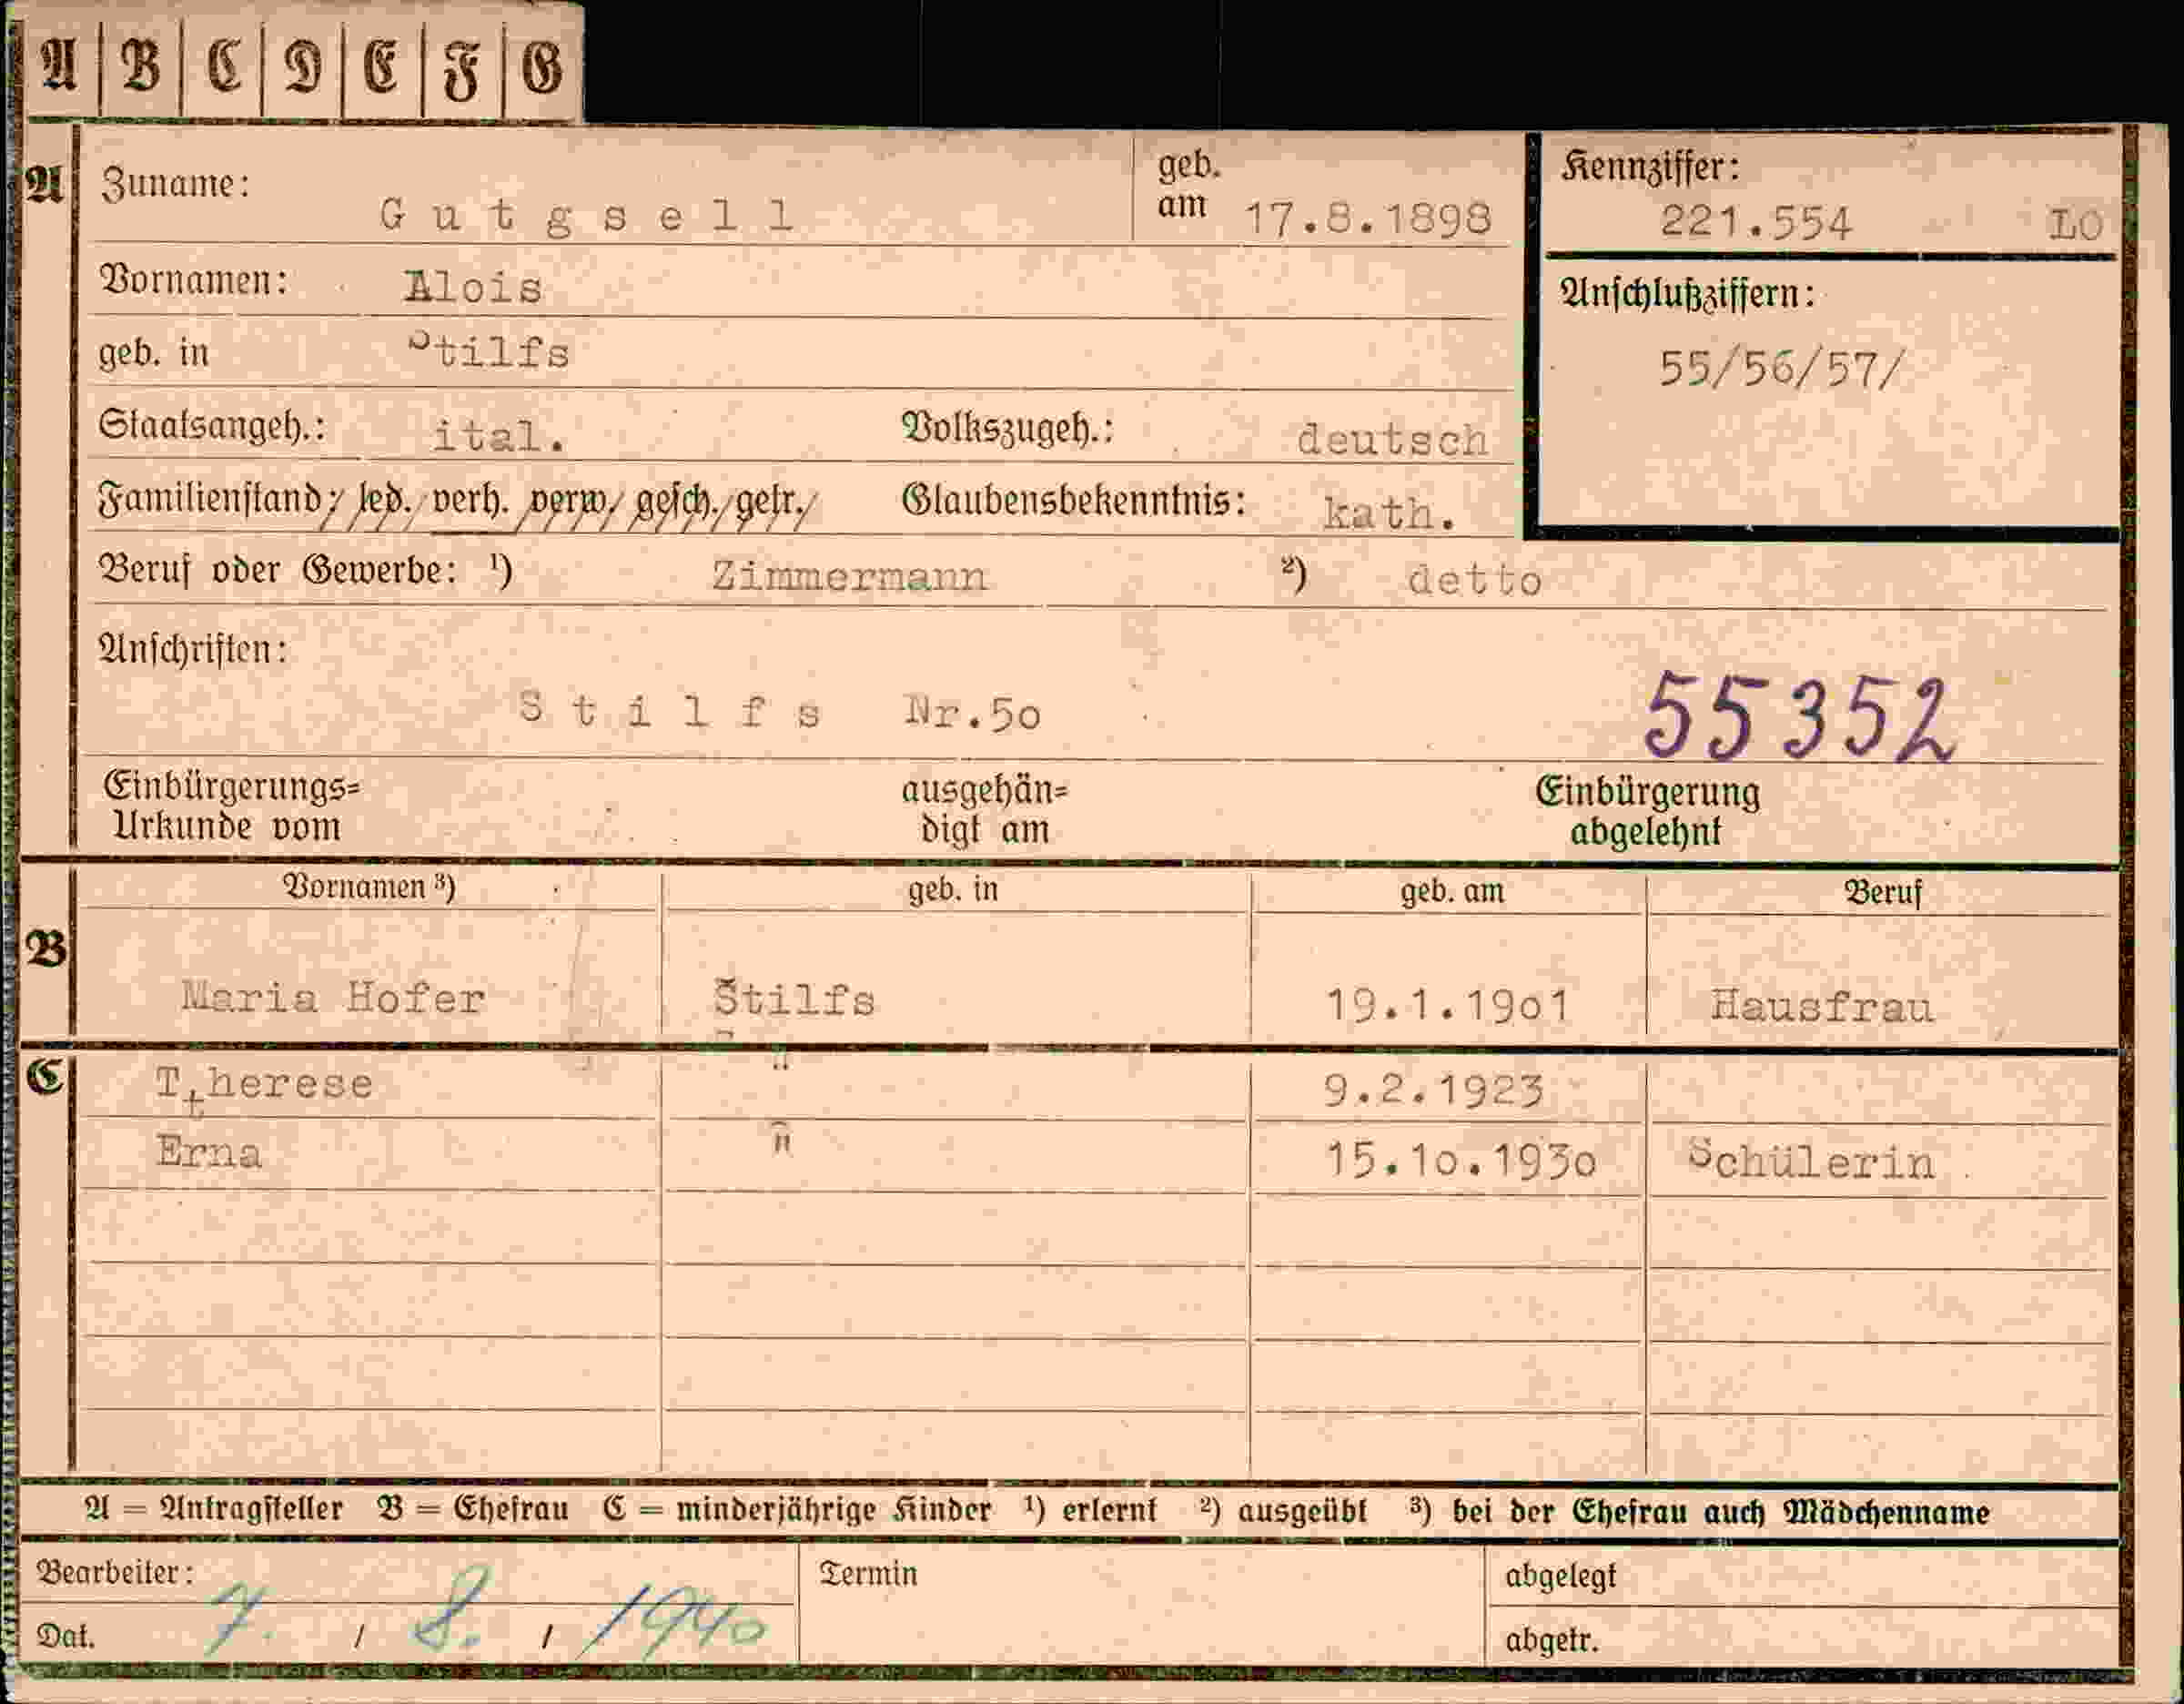 A B C D E F G
A Zuname: Gutgsell geb. am 17.8.1898 Kennziffer: 221.554 LO
Vornamen: Alois Anschlußziffern:
geb. in Stilfs 55/56/57/
Staatsangeh.: ital. Volkszugeh.: deutsch
Familienstand: led. verh. verw. gesch. getr. Glaubensbekenntnis: kath.
Beruf oder Gewerbe: ¹) Zimmermann ²) detto
Anschriften:
Stilfs Nr.5o 55352
Einbürgerungs= ausgehän= Einbürgerung
Urkunde vom digt am abgelehnt
Vornamen ³) geb. in geb. am Beruf
B
Maria Hofer Stilfs 19.1.19o1 Hausfrau
C Ttherese " 9.2.1923
Erna " 15.1o.193o Schülerin
A = Antragsteller B = Ehefrau C = minderjährige Kinder ¹) erlernt ²) ausgeübt ³) bei der Ehefrau auch Mädchenname
Bearbeiter: Termin abgelegt
Dat. 7. / 8. / 1940 abgetr.